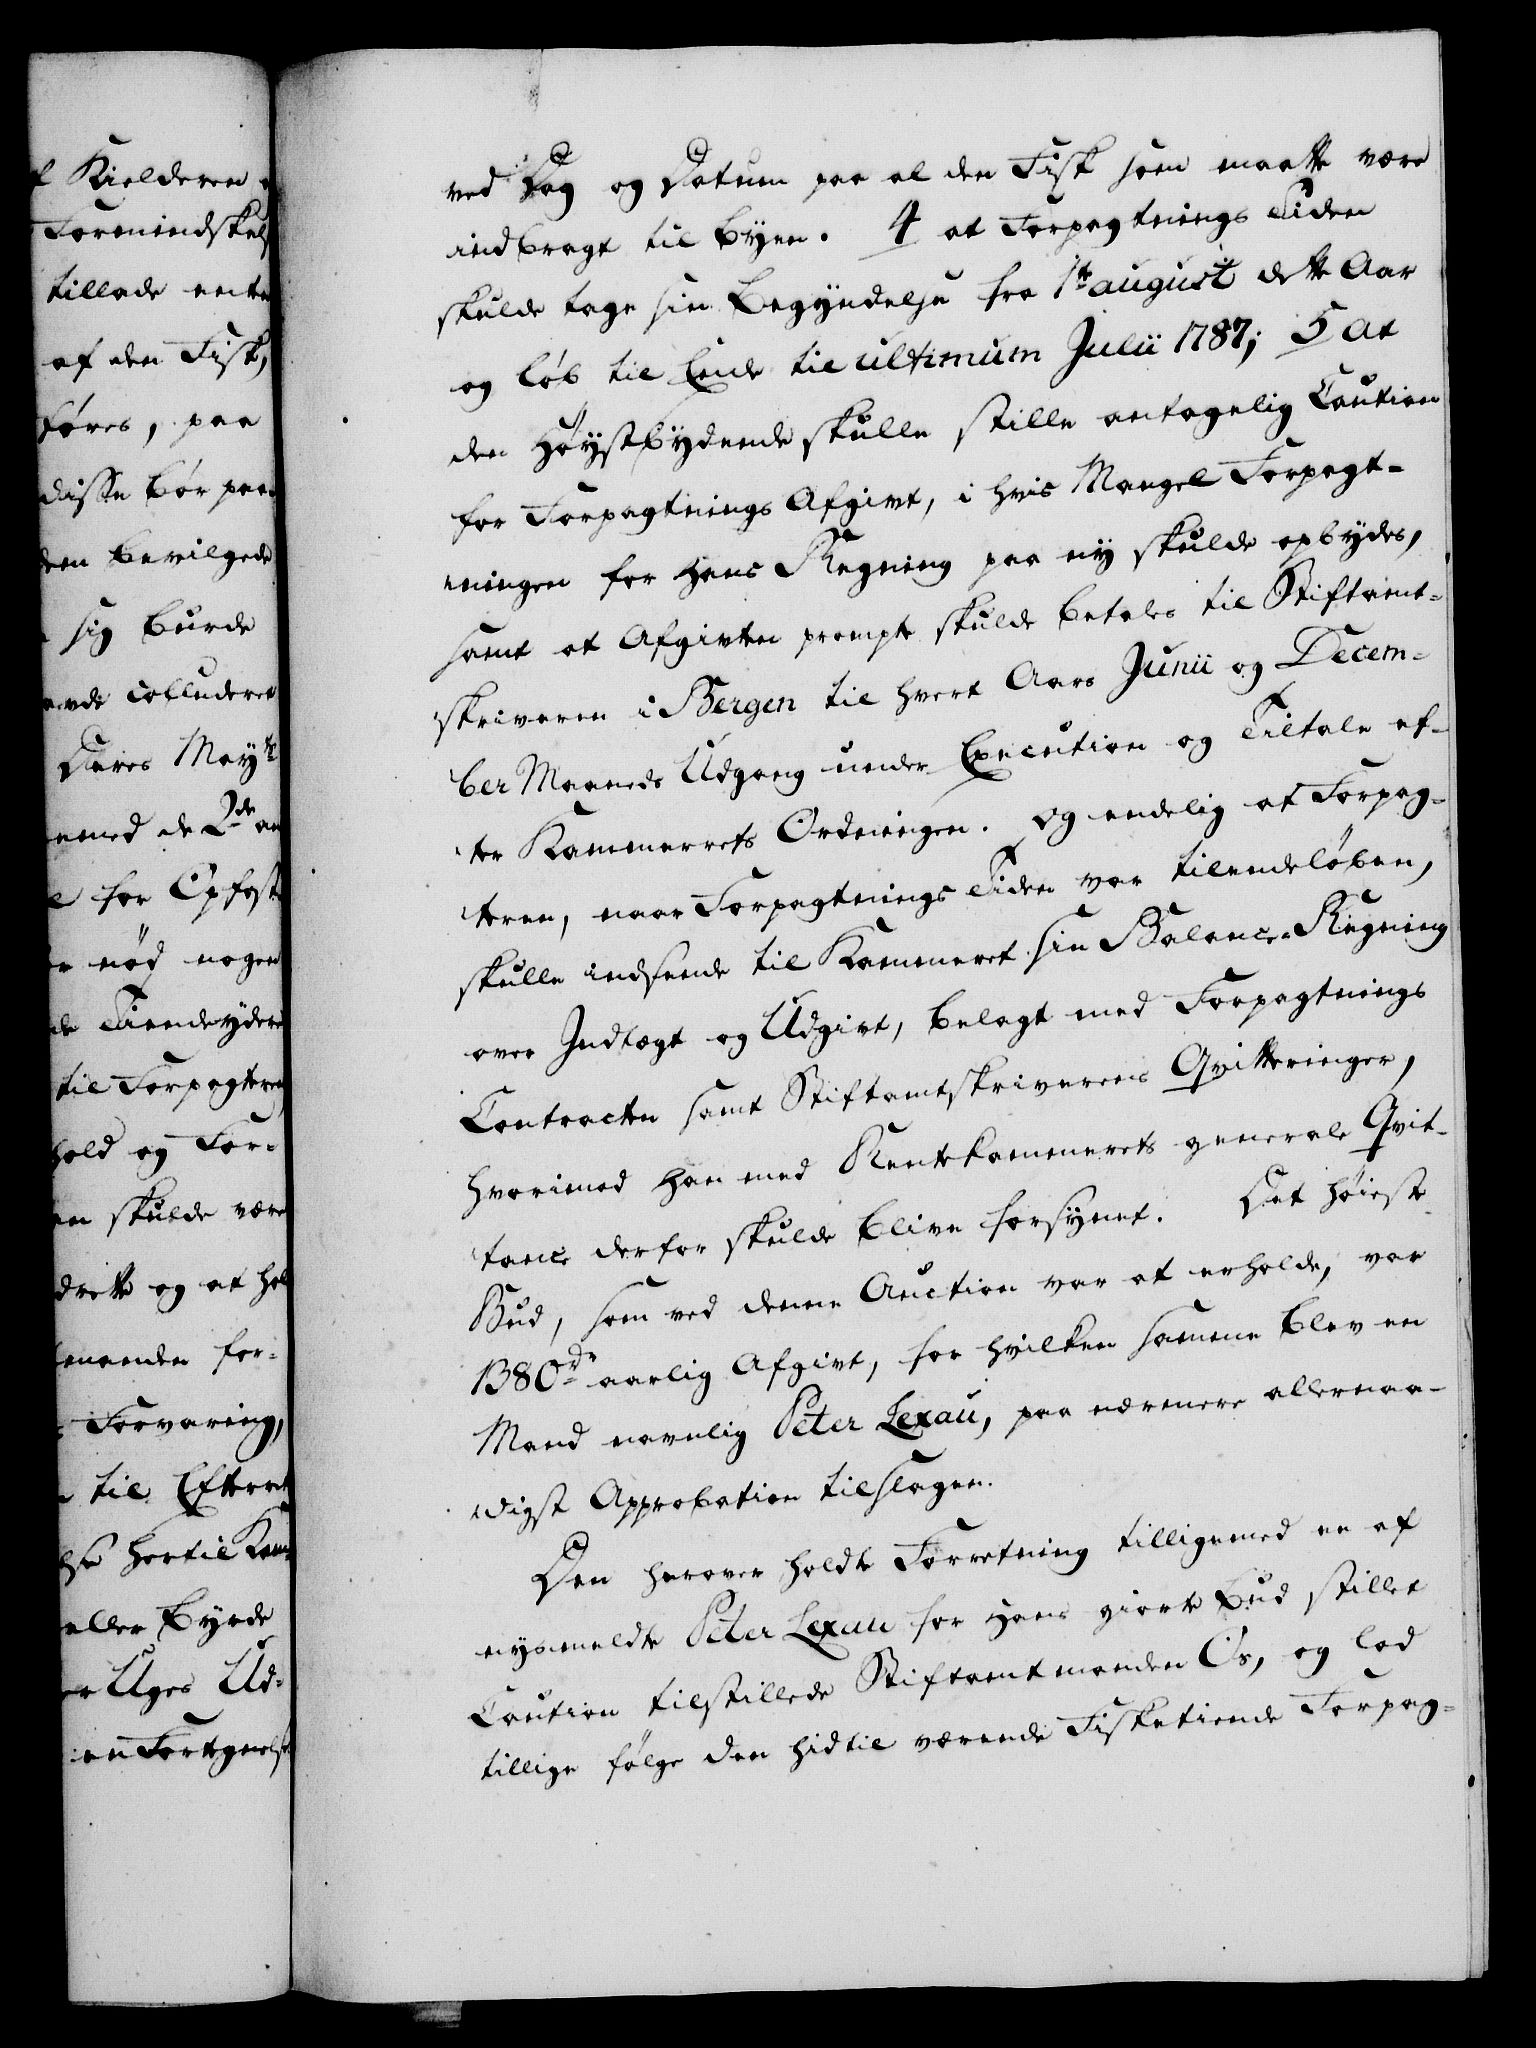 f Kielderen
Formindskels
tillade ente
af den Fisk,
føres, paa
disse bør paa
dem bevilgede
sig burde
avde colluderet
Deres Mayts
emed de 2de an
for Opfost
nød nogen
de Tiendeydere
til Forpagteren
hold og For-
en skulde være
drette og at hol
manden for-
Forvaring,
til Efterret
lse hertil Kam
eller Byrde
er Uges Ud-
en Fortegnelse
ved Dag og Datum paa al den Fisk som maatte være
indbragt til Byen. 4 at Forpagtnings Tiden
skulde tage sin Begyndelse fra 1te august dette Aar
og løb til Ende til ultimum Julii 1787; 5 At
den Høystbydende skulle stille antagelig Caution
for Forpagtnings Afgivt, i hvis Mangel Forpagt-
ningen for hans Regning paa ny skulde opbydes,
samt at Afgivten prompte skulde betales til Stiftamt-
skriveren i Bergen til hvert Aars Junii og Decem-
ber Maaneds Udgang under Execution og Tiltale ef-
ter Kammerrets Ordningen. Og endelig at Forpag-
teren, naar Forpagtnings Tiden var tilendeløben,
skulle indsende til Kammeret sin Balance-Regning
over Indtægt og Udgivt, belagt med Forpagtnings
Contracten samt Stiftamtskriverens Qvitteringer,
hvorimod han med Rentekammerets generale Qvit-
tance derfor skulde blive forsynet. Det høieste
Bud, som ved denne Auction var at erholde, var
1380 rdr aarlig Afgivt, for hvilken samme blev en
Mand navnlig Peter Lexau, paa nærmere allernaa-
digst Approbation tilslagen.
Den herover holdte Forretning tilligemed en af
nysmeldte Peter Lexau for hans giorte Bud stillet
Caution tilstillede Stiftamtmanden Os, og lod
tillige følge den hidtil værende Fisketiende Forpag-